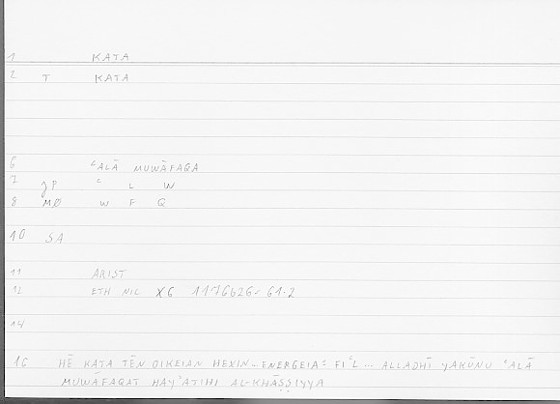 1 KATA
2 T KATA
6 ʿALĀ MUWĀFAQA
7 JP ʿ L W
8 MØ W F Q
10 SA
11 ARIST
12 ETH NIC X6 1176b26-
14
16 HĒ KATA TĒN OIKEIAN HEXIN - ENERGEIA = FIʿL ... ALLADHĪ YAKŪNU ʿALĀ
MUWĀFAQAT HAYʾATIHI AL-KHĀṢṢIYYA